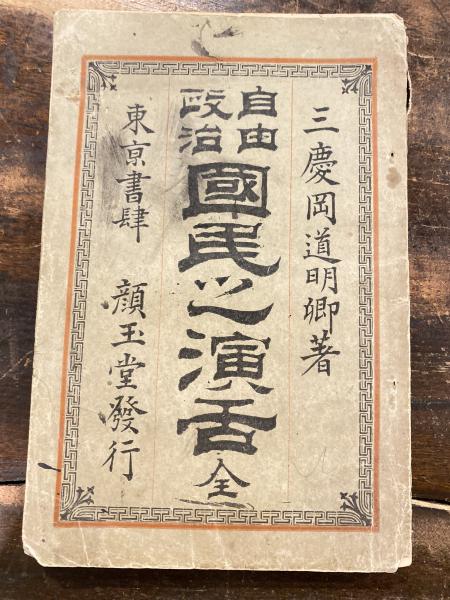 三慶岡道明卿著
自由
政治
國民之演舌全
東亰書肆 顔玉堂發行